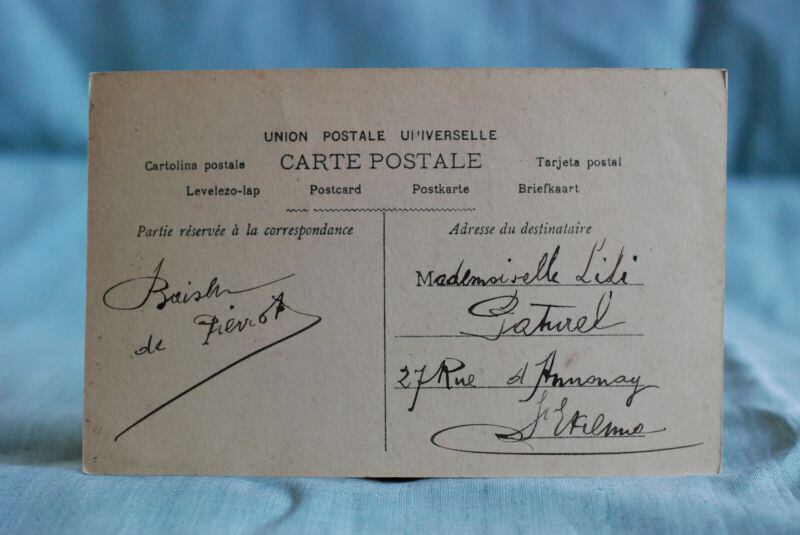 UNION POSTALE UNIVERSELLE
Cartolina postale CARTE POSTALE Tarjeta postal
Levelezo-lap Postcard Postkarte Briefkaart
Partie réservée à la correspondance
Adresse du destinataire
de Pierrot
Mademoiselle Lili
27 Rue d'Annonay
St Etienne